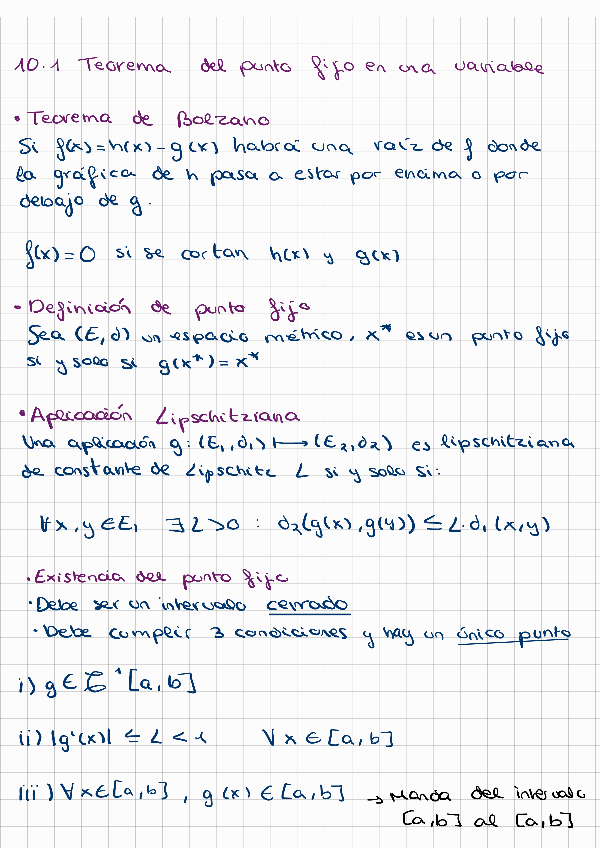 10.1 Teorema del punto fijo en una variable
• Teorema de Bolzano
Si f(x)=h(x)-g(x) habrá una raíz de f donde
la gráfica de h pasa a estar por encima o por
debajo de g.
f(x)=0 si se cortan h(x) y g(x)
• Definición de punto fijo
Sea (E,d) un espacio métrico, x* es un punto fijo
si y solo si g(x*)=x*
• Aplicación Lipschitziana
Una aplicación g:(E₁,d₁)⟼(E₂,d₂) es lipschitziana
de constante de Lipschitz L si y solo si:
∀x,y∈E₁ ∃L>0 : d₂(g(x),g(y)) ≤ L·d₁(x,y)
• Existencia del punto fijo
• Debe ser un intervalo cerrado
• Debe cumplir 3 condiciones y hay un único punto
i) g∈C¹[a,b]
ii) |g'(x)| ≤ L < 1 ∀x∈[a,b]
iii) ∀x∈[a,b], g(x)∈[a,b] → Manda del intervalo
[a,b] al [a,b]